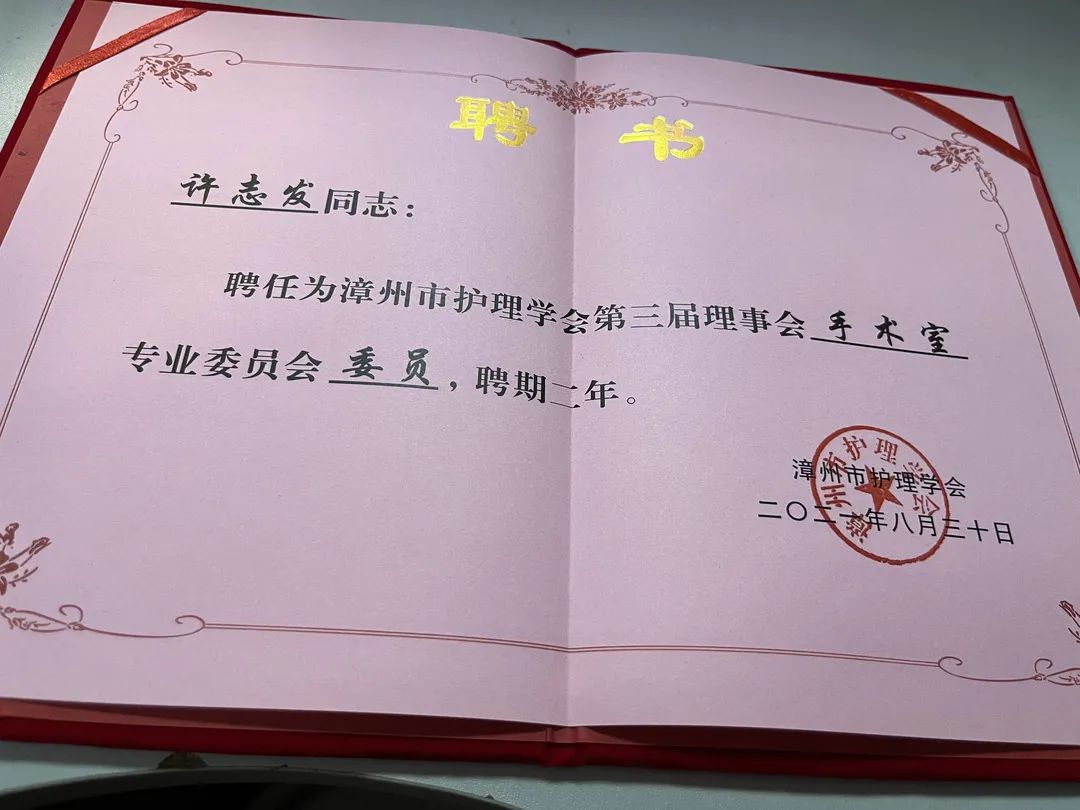 聘书
许志发同志：
聘任为漳州市护理学会第三届理事会手术室
专业委员会委员，聘期二年。
漳州市护理学会
二〇二一年八月三十日
漳州市护理学会